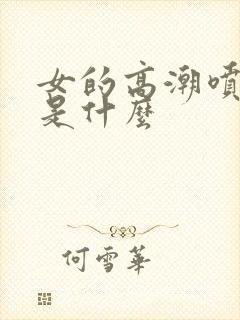 女的高潮噴
是什麼
何雪華